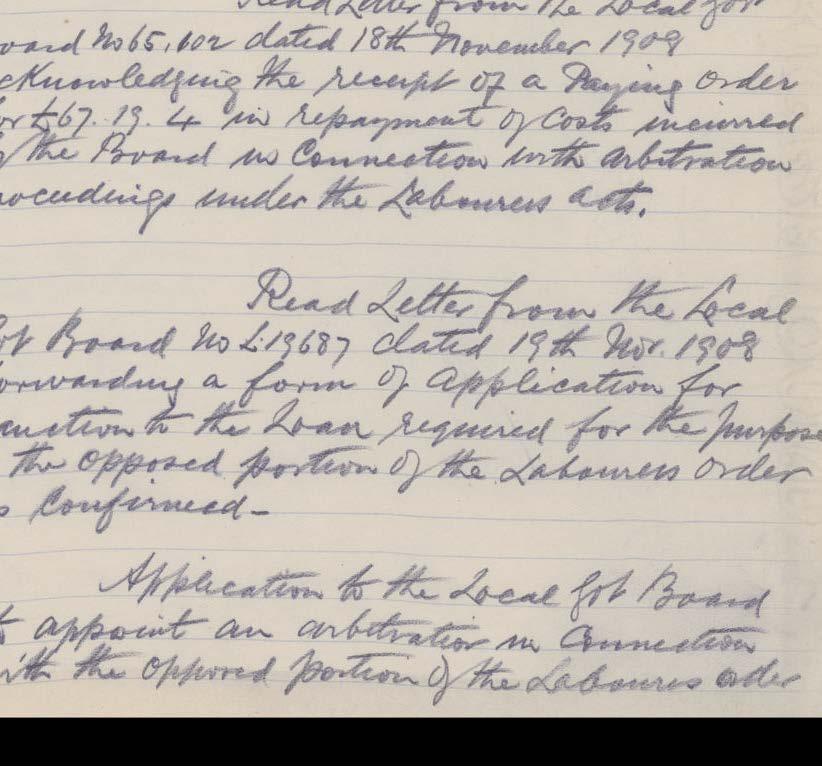 Read Letter from the Local Gov
oard No 65,602 dated 18th November 1908
cknowledging the receipt of a Paying order
or £67. 19. 4 in repayment of Costs incurred
y the Board in Connection with arbitration
roceedings under the Labourers acts.
Read Letter from the Local
ot Board No L.19687 dated 19th Nov. 1908
orwarding a form of application for
anction to the Loan required for the purpose
the opposed portion of the Labourers order
s Confirmed—
Application to the Local Got Board
to appoint an arbitrator in Connection
ith the opposed portion of the Labourers order